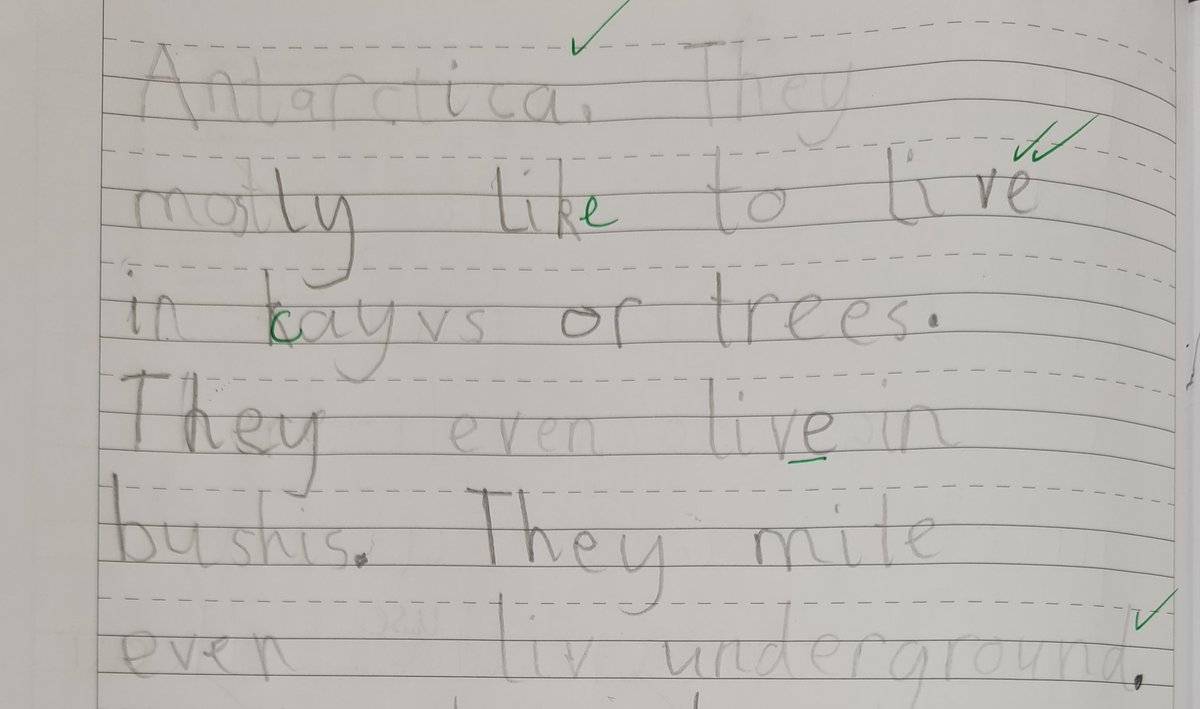 Antarctica. They
mostly like to live
in cayvs or trees.
They even live in
bushis. They mite
even liv underground.